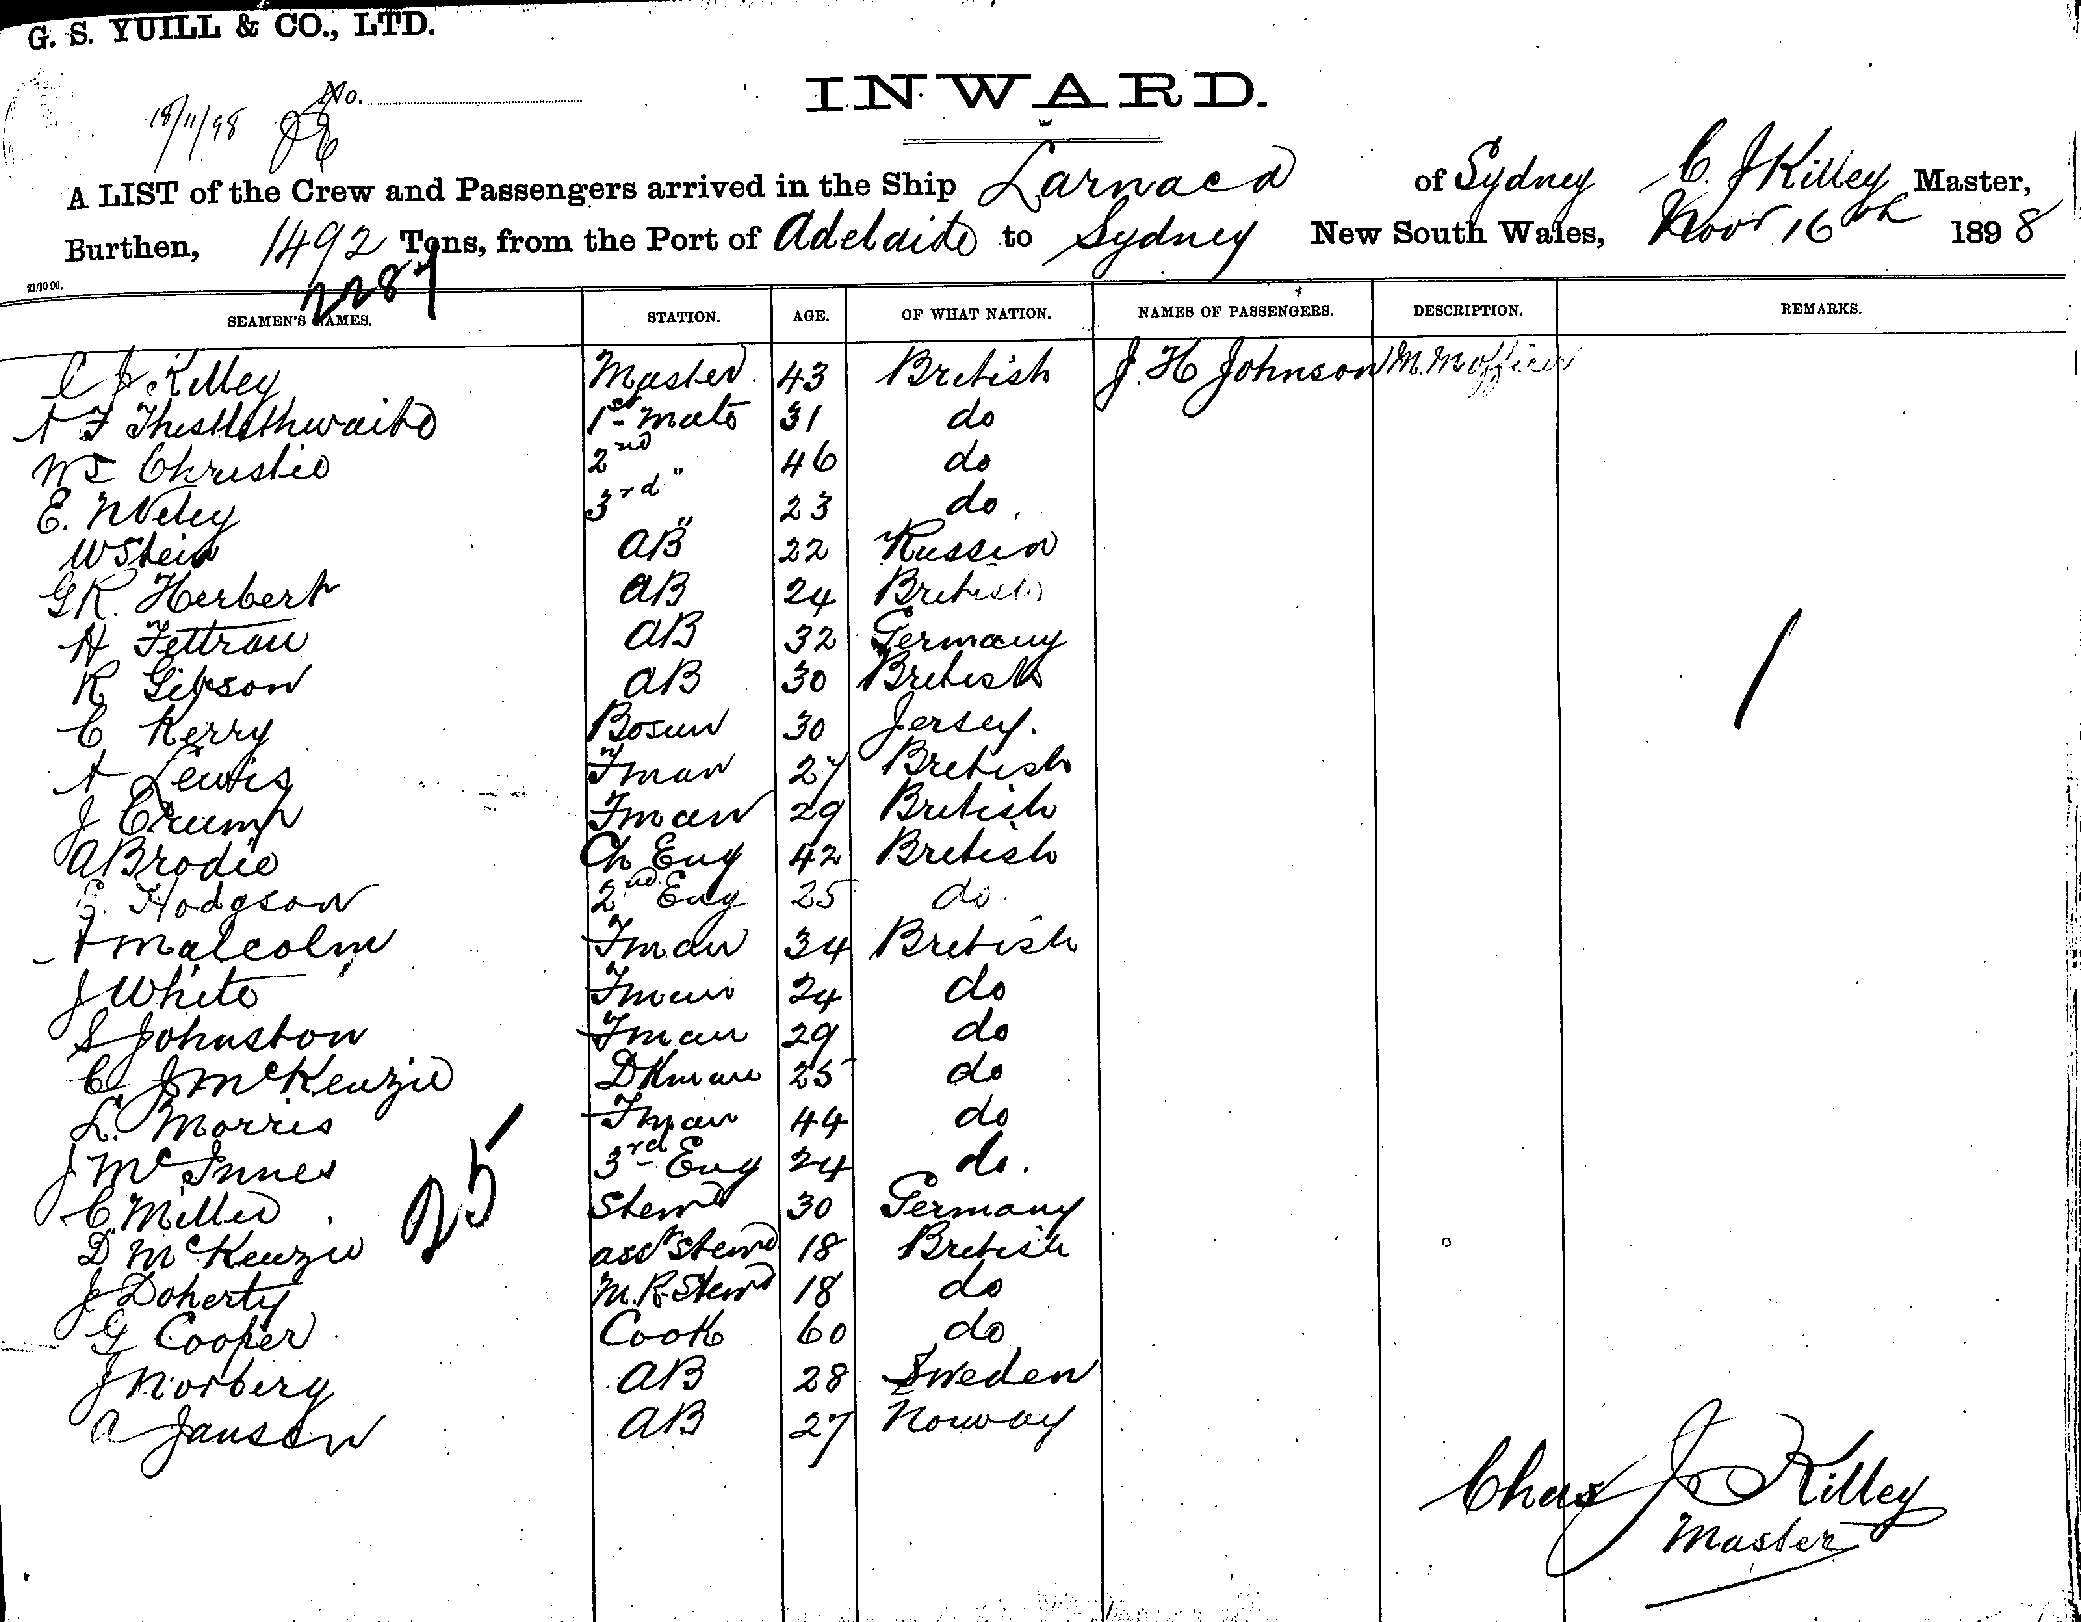 G. S. YUILL & CO., LTD.
No.
18/11/98
INWARD.
A LIST of the Crew and Passengers arrived in the Ship Larnaca of Sydney C. J Killey Master,
Burthen, 1492 Tons, from the Port of Adelaide to Sydney New South Wales, Novr 16th 1898
2287
SEAMEN'S NAMES. STATION. AGE. OF WHAT NATION. NAMES OF PASSENGERS. DESCRIPTION. REMARKS.
C J Killey Master 43 British J. H Johnson M. M officer
A F 1st mate 31 do
Christie 2nd " 46 do
E. 3rd " 23 do.
W Stein AB 22 Russia
G R. Herbert AB 24 British
H Tettrau AB 32 Germany
R Gibson AB 30 British
C Kerry Bosun 30 Jersey.
A Lewis Fman 27 British
J Crump Fman 29 British
A Brodie Ch Eng 42 British
Hodgson 2nd Eng 25 do.
A Malcolm Fman 34 British
J White Fman 24 do
S Johnston Fman 29 do
C J McKenzie DKman 25 do
L. Morris Fman 44 do
J McInnes 3rd Eng 24 do.
C. Miller Stewd 30 Germany
D McKenzie asst Stewd 18 British
25
J Doherty M. R. Stewd 18 do
G Cooper Cook 60 do
J Norberg AB 28 Sweden
A Jansen AB 27 Norway
1
Chas J Killey
Master